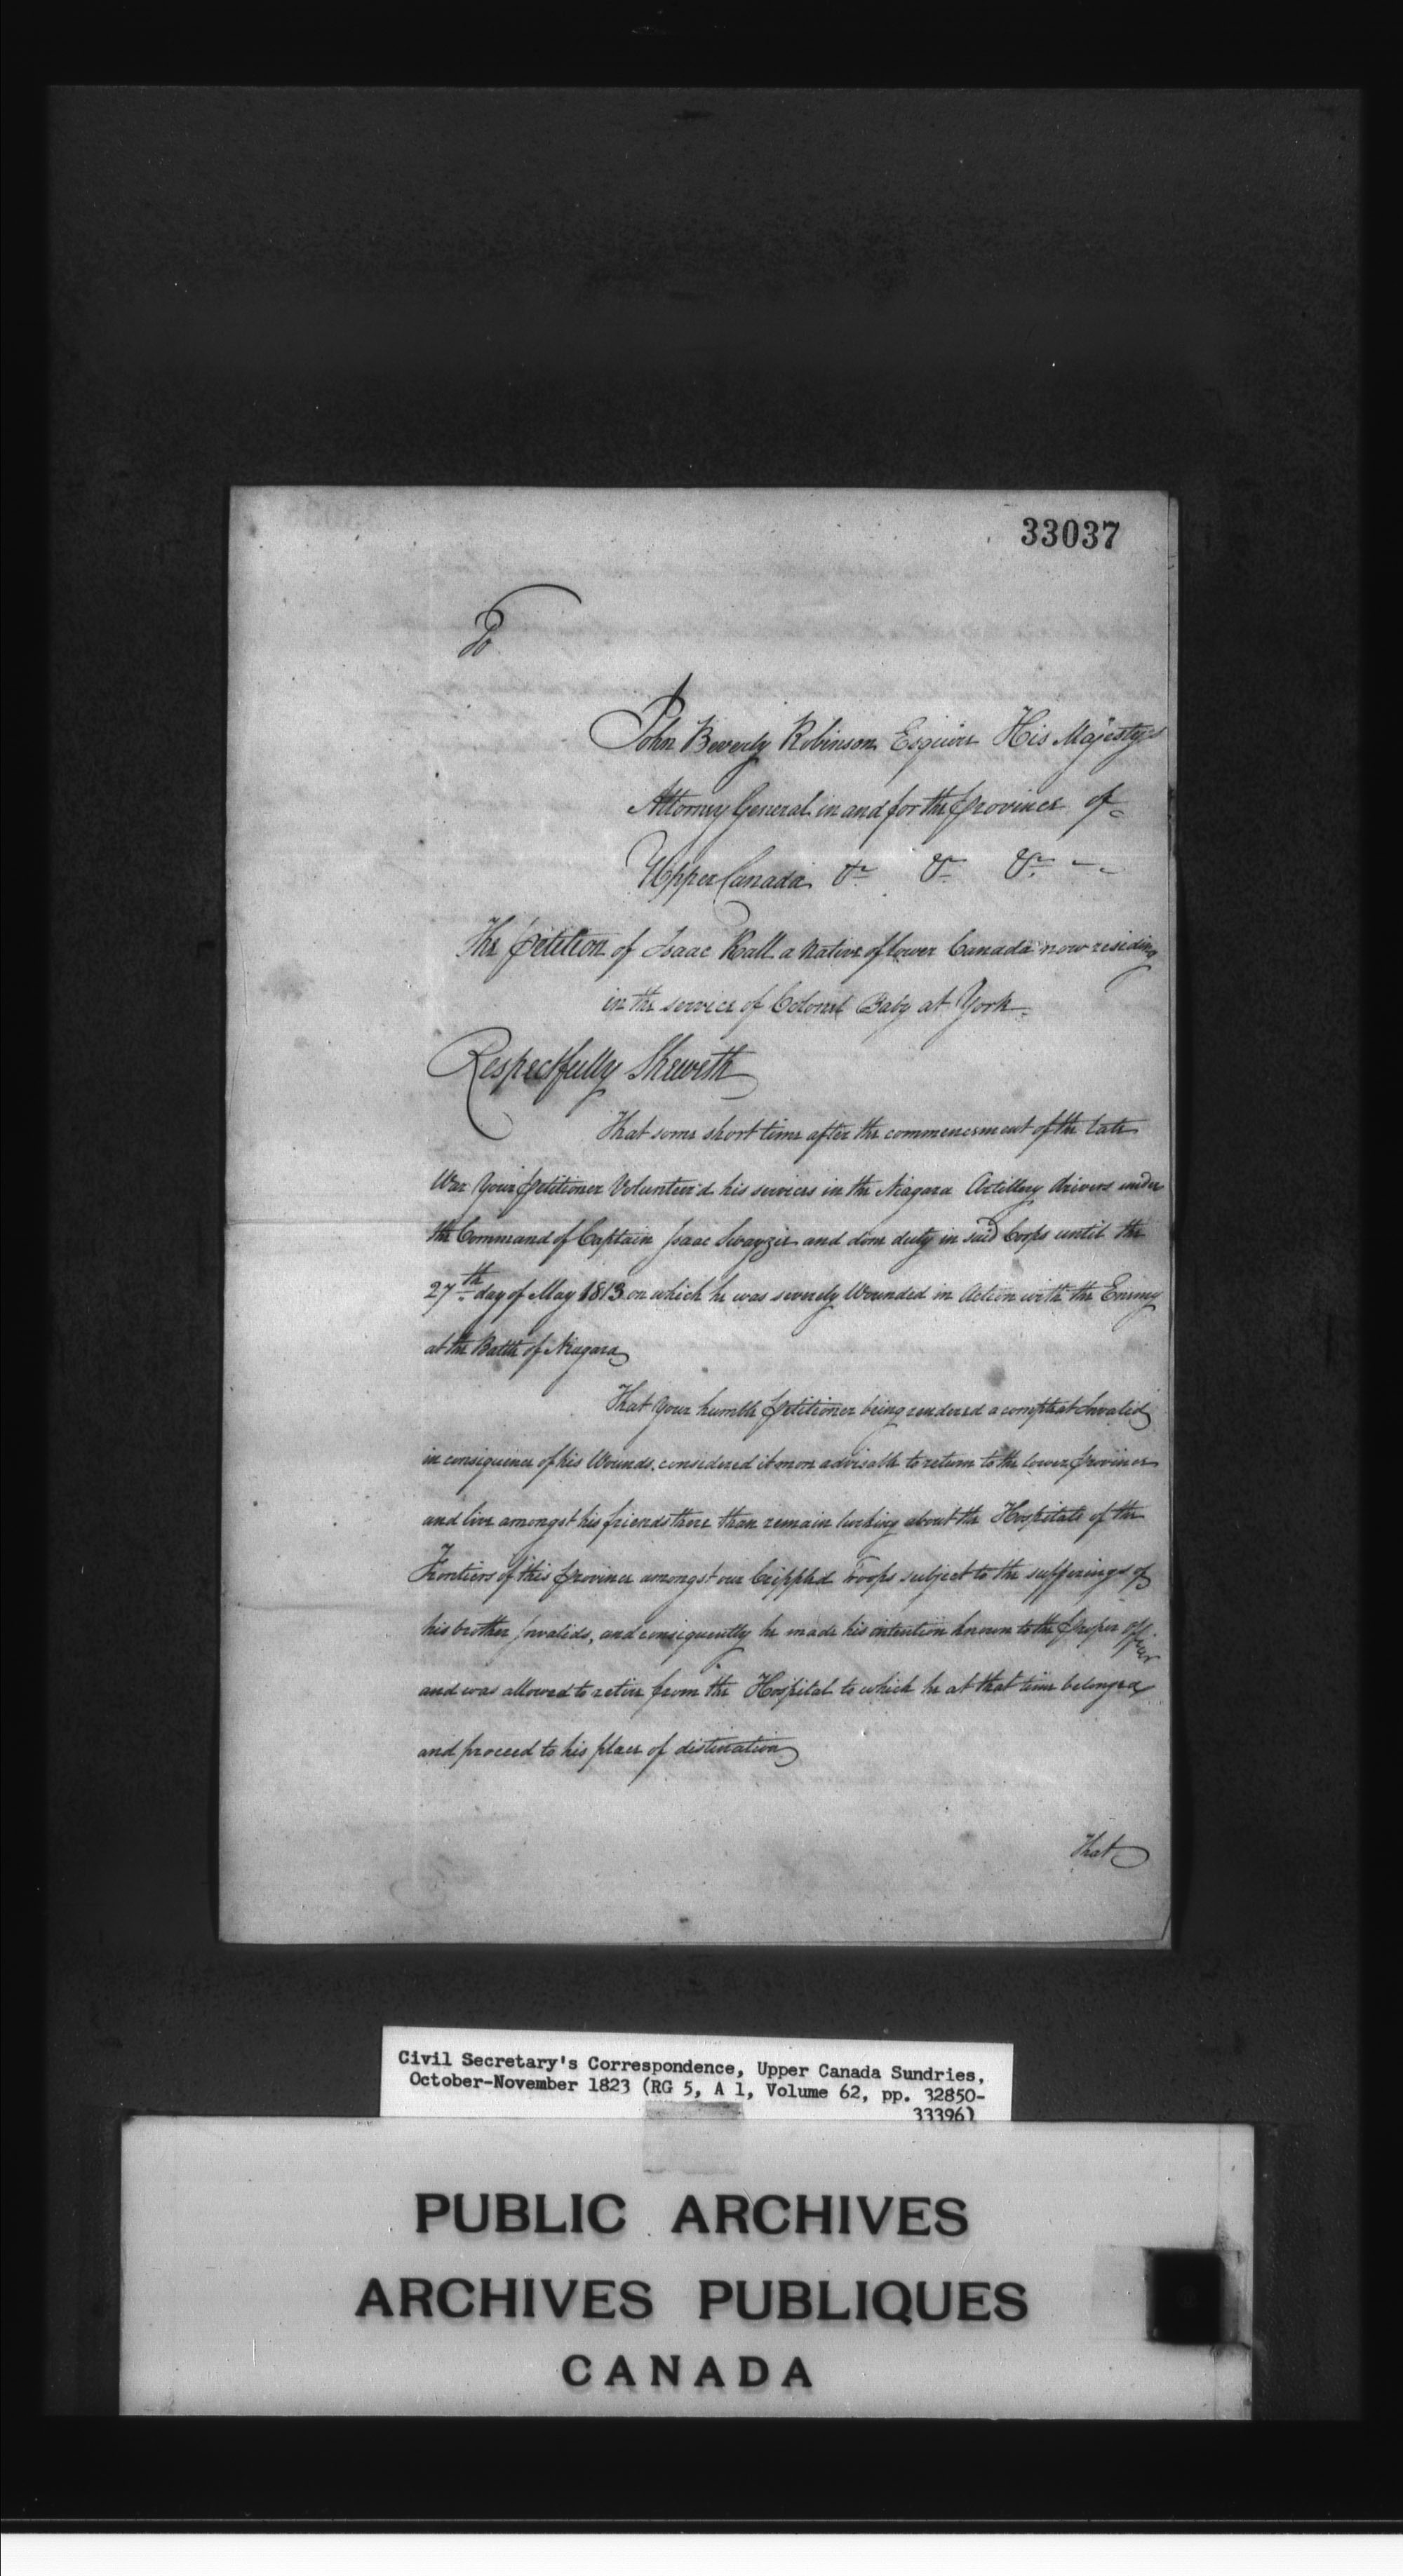 33037
To
John Beverly Robinson Esquire His Majesty's
Attorney General in and for the province of
Upper Canada &c &c &c
The petition of Isaac Hall a Native of lower Canada now residing
in the service of Colonel Baby at York
Respectfully Sheweth
That some short time after the commencement of the late
War Your petitioner Volunteer'd his services in the Niagara Artillery drivers under
the Command of Captain Isaac Swayzie and done duty in said Corps until the
27th day of May 1813 on which he was severely Wounded in Action with the Enemy
at the Battle of Niagara
That your humble petitioner being rendered a compleat Invalid
in consequence of his Wounds, considered it more advisable to return to the lower province
and live amongst his friends there than remain lurking about the Hospitals of the
Frontiers of this province amongst our Crippled troops subject to the sufferings of
his brother Invalids, and consequently he made his intention known to the proper officer
and was allowed to retire from the Hospital to which he at that time belonged
and proceed to his place of distination
That
Civil Secretary's Correspondence, Upper Canada Sundries,
October-November 1823 (RG 5, A 1, Volume 62, pp. 32850-
33396)
PUBLIC ARCHIVES
ARCHIVES PUBLIQUES
CANADA